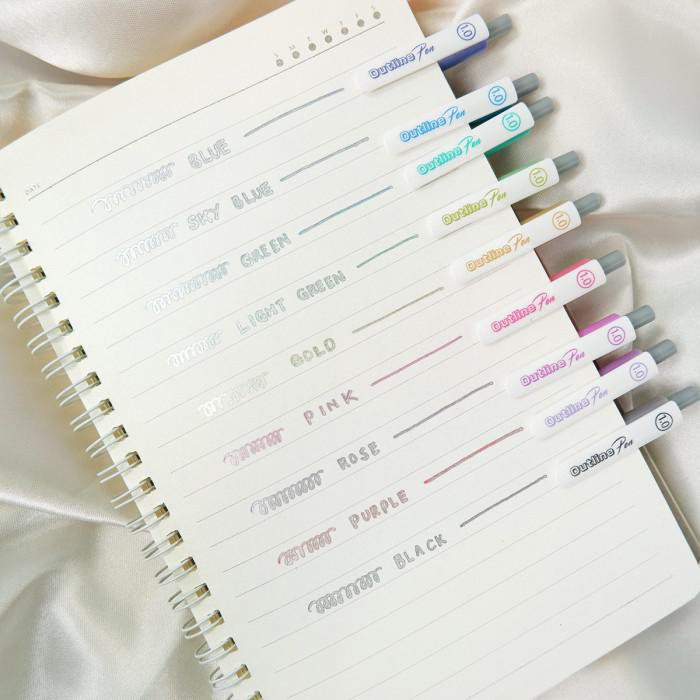 S M T W T F S
DATE
Outline Pen 1.0
BLUE
Outline Pen 1.0
SKY BLUE
Outline Pen 1.0
GREEN
Outline Pen 1.0
LIGHT GREEN
Outline Pen 1.0
GOLD
Outline Pen 1.0
PINK
Outline Pen 1.0
ROSE
Outline Pen 1.0
PURPLE
Outline Pen 1.0
BLACK